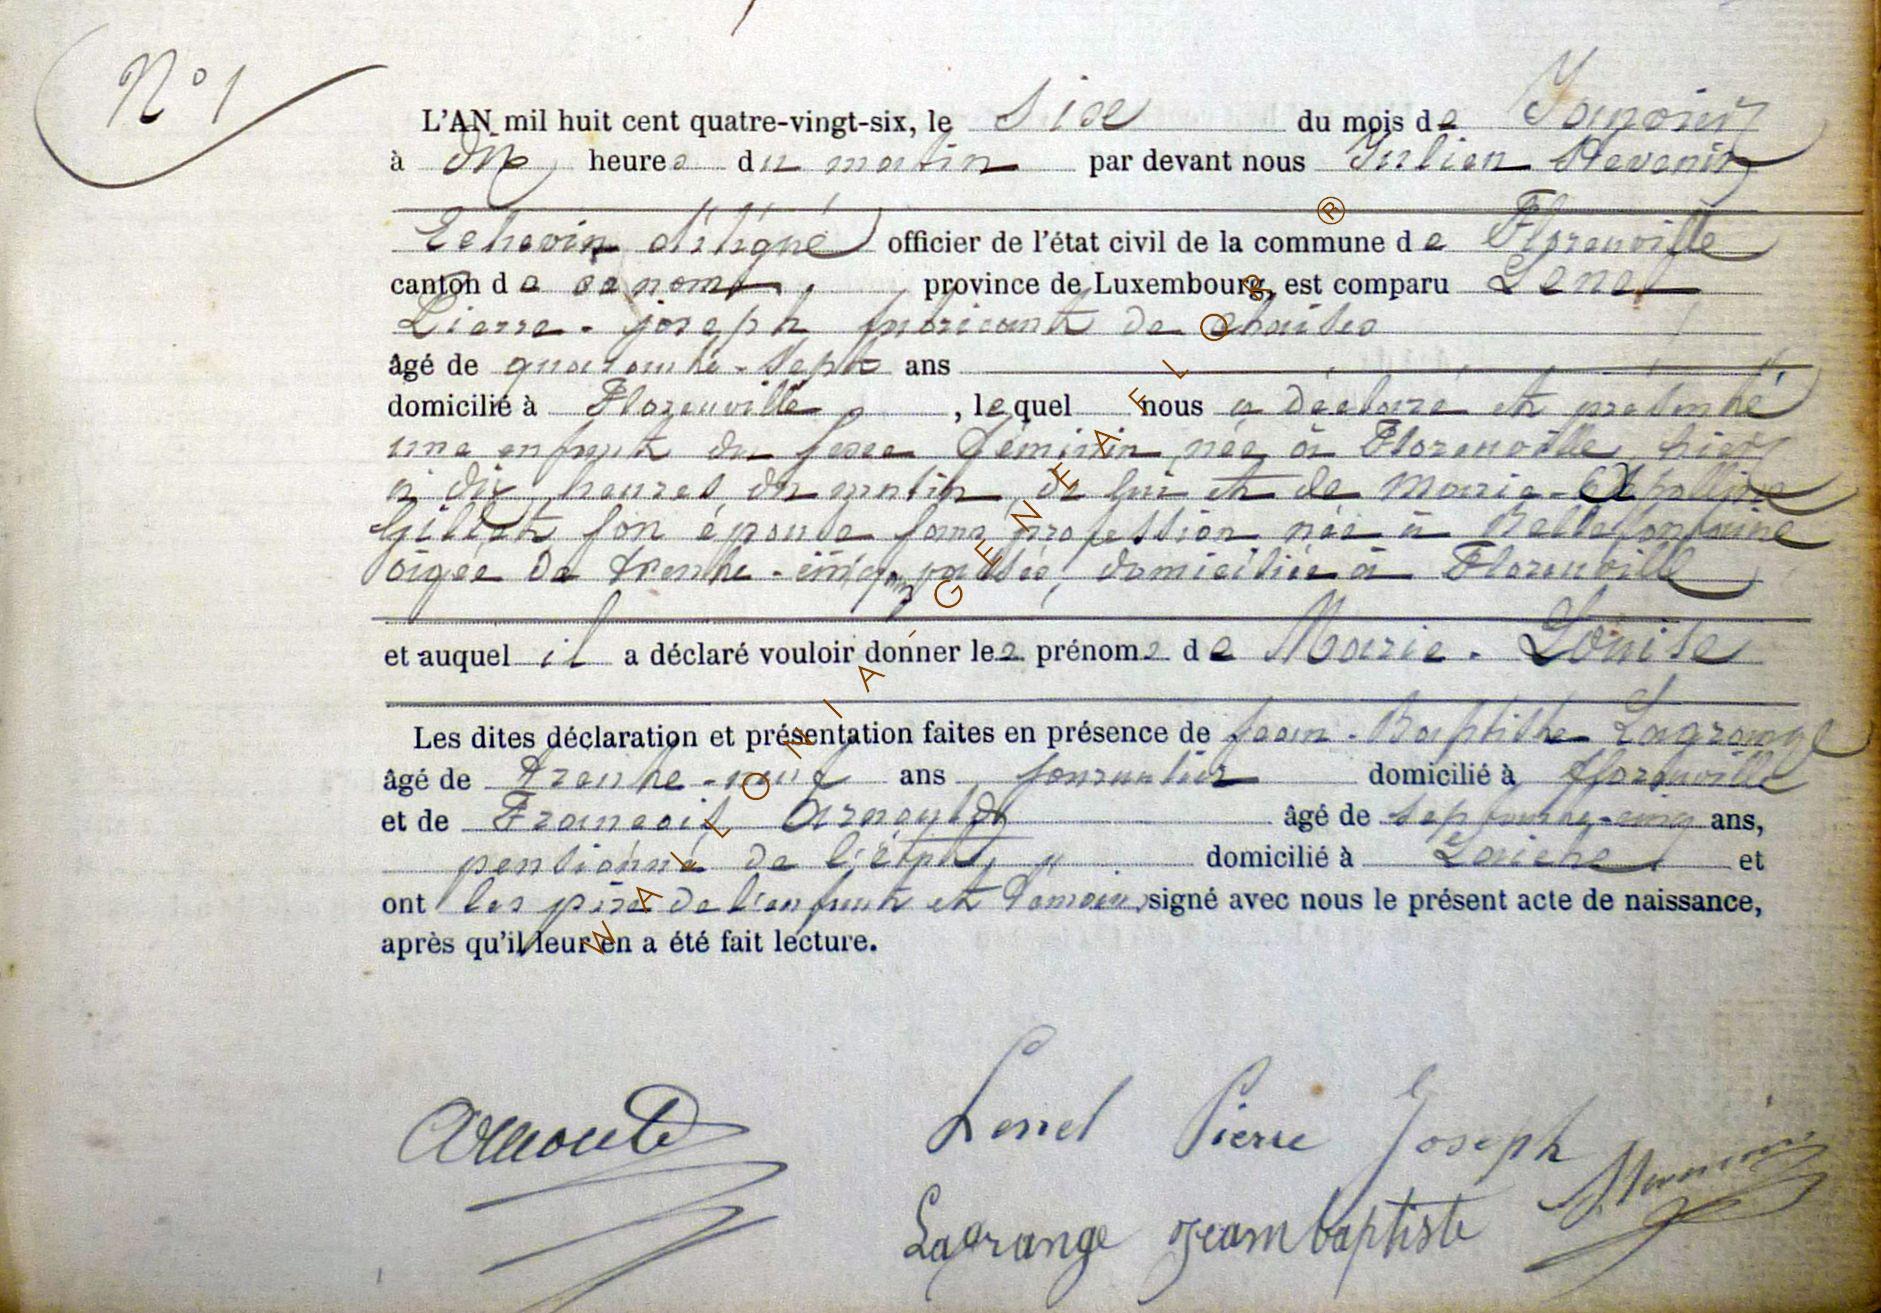 N° 1
L'AN mil huit cent quatre-vingt-six, le six du mois de Janvier
à dix heures du matin par devant nous Julien
Echevin délégué officier de l'état civil de la commune de Florenville
canton de ce nom, province de Luxembourg, est comparu Lenel
Pierre-joseph fabricant de chaises
âgé de quarante-sept ans
domicilié à Florenville, lequel nous a déclaré et présenté
une enfant du sexe féminin née à Florenville, hier
à dix heures du matin, de lui et de Marie-Apolline
Gillet son épouse sans profession née à Bellefontaine
âgée de trente-cinq passée, domiciliée à Florenville
et auquel il a déclaré vouloir donner les prénoms de Marie-Louise
Les dites déclaration et présentation faites en présence de jean-Baptiste Lagrange
âgé de trente-neuf ans journalier domicilié à florenville
et de François Arnould âgé de septante-cinq ans,
pensionné de l'état, domicilié à Laiche et
ont les père de l'enfant et témoins signé avec nous le présent acte de naissance,
après qu'il leur en a été fait lecture.
Arnould
Lenel Pierre Joseph
Lagrange jean baptiste
WALLONIA-GENEAFLOR ®